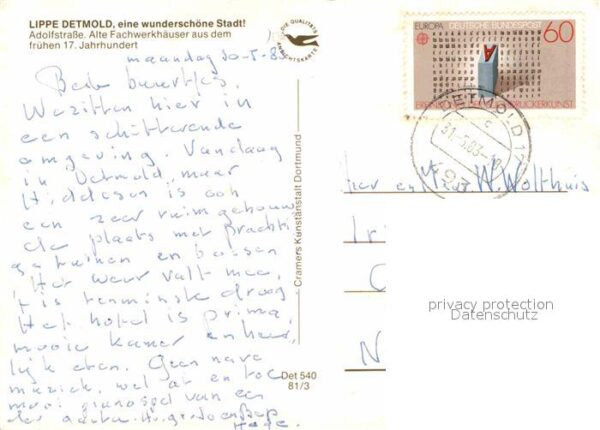 LIPPE DETMOLD, eine wunderschöne Stadt!
Adolfstraße. Alte Fachwerkhäuser aus dem
frühen 17. Jahrhundert
DIE QUALITÄTS
ANSICHTSKARTE
maandag 30-5-83
Beste buurtjes.
We zitten hier in
een schitterende
omgeving. Vandaag
in Detmold, maar
Hiddesen is ook
een zeer ruim gebouw
de plaats met prachti
ge tuinen en bossen
Het weer valt mee,
't is tenminste droog
Het hotel is prima,
mooie kamer en heer
lijk eten. Geen
muziek, wel af en toe
mooi pianospel van een
der gasten. Hr. groeten
Cramers Kunstanstalt Dortmund
Det 540
81/3
EUROPA DEUTSCHE BUNDESPOST
60
ERFINDUNG DER BUCHDRUCKERKUNST
DETMOLD 1
31.5.83
W. Wolthuis
privacy protection
Datenschutz